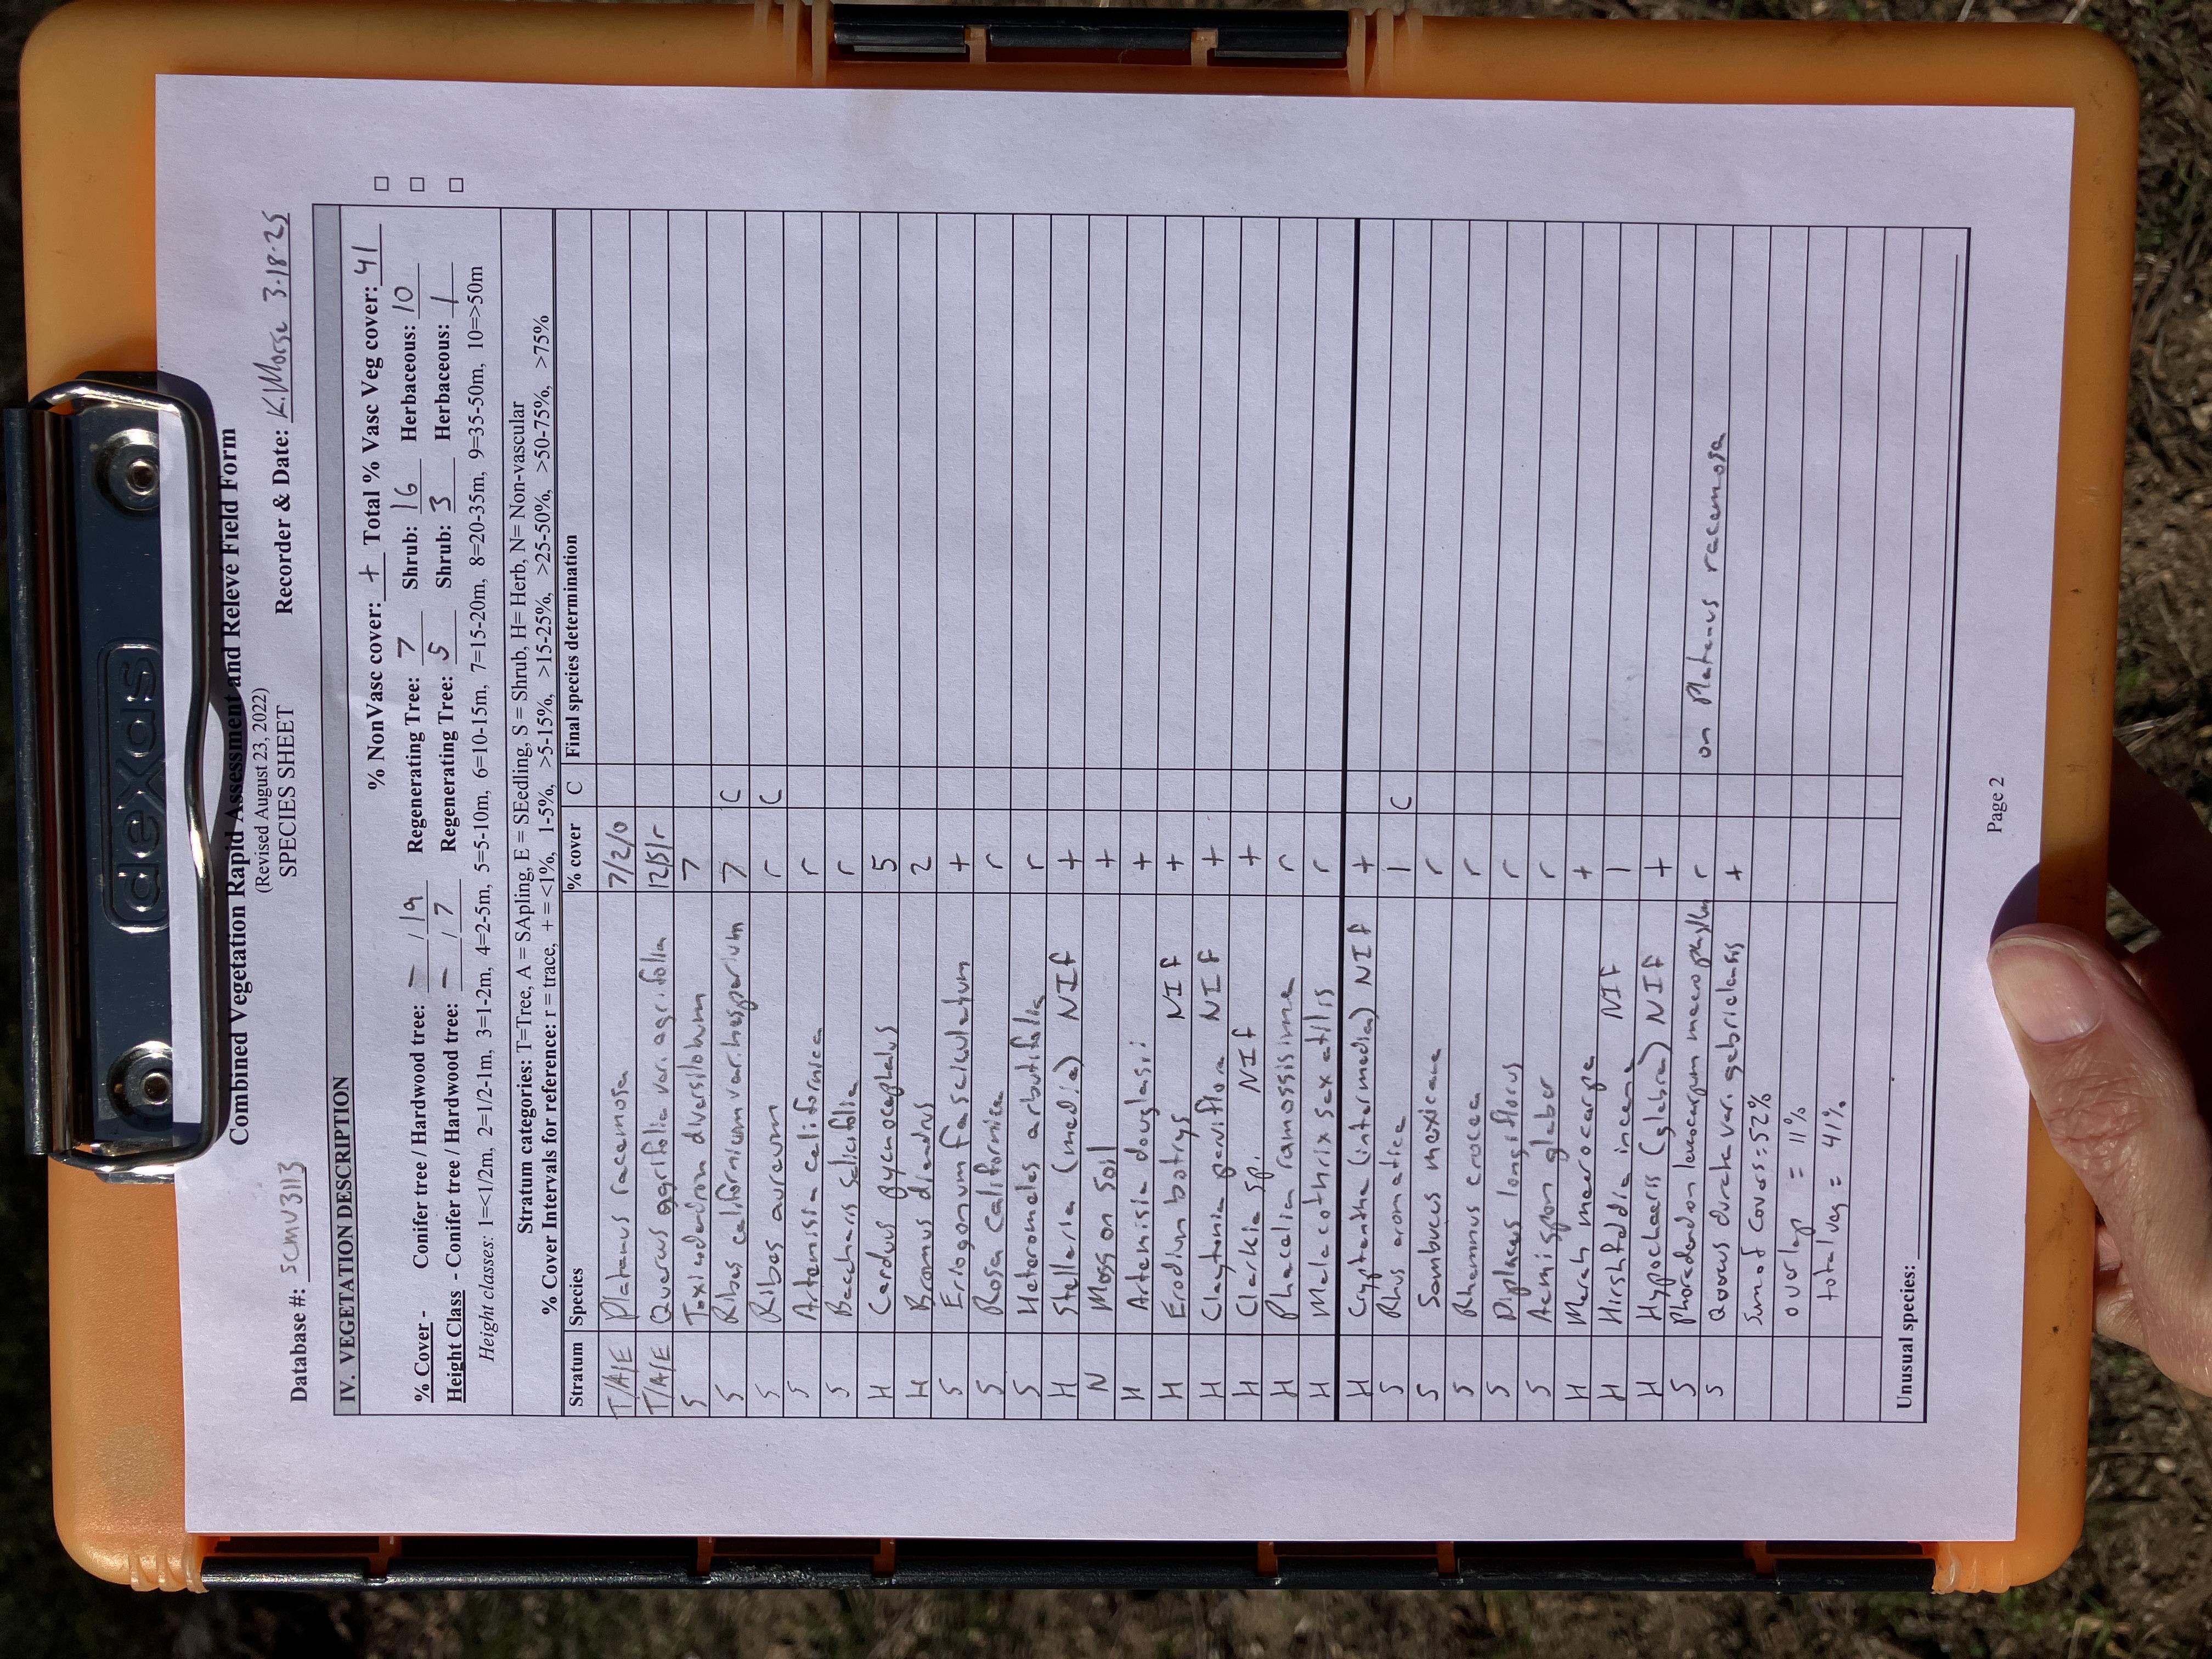 dexas
Combined Vegetation Rapid Assessment and Relevé Field Form
(Revised August 23, 2022)
SPECIES SHEET
Database #: SCMV3113 Recorder & Date: K.Morse 3-18-25
IV. VEGETATION DESCRIPTION
% NonVasc cover: + Total % Vasc Veg cover: 41
% Cover - Conifer tree / Hardwood tree: - / 19 Regenerating Tree: 7 Shrub: 16 Herbaceous: 10
Height Class - Conifer tree / Hardwood tree: - / 7 Regenerating Tree: 5 Shrub: 3 Herbaceous: 1
Height classes: 1=<1/2m, 2=1/2-1m, 3=1-2m, 4=2-5m, 5=5-10m, 6=10-15m, 7=15-20m, 8=20-35m, 9=35-50m, 10=>50m
Stratum categories: T=Tree, A = SApling, E = SEedling, S = Shrub, H= Herb, N= Non-vascular
% Cover Intervals for reference: r = trace, + = <1%, 1-5%, >5-15%, >15-25%, >25-50%, >50-75%, >75%
Stratum Species % cover C Final species determination
T/A/E Platanus racemosa 7/2/0
T/A/E Quercus agrifolia var. agrifolia 12/5/r
S Toxicodendron diversilobum 7
S Ribes californicum var. hesperium 7 C
S Ribes aureum r C
S Artemisia californica r
S Baccharis salicifolia r
H Carduus pycnocephalus 5
H Bromus diandrus 2
S Eriogonum fasciculatum +
S Rosa californica r
S Heteromeles arbutifolia r
H Stellaria (media) NIF +
N Moss on soil +
H Artemisia douglasii +
H Erodium botrys NIF +
H Claytonia parviflora NIF +
H Clarkia sp. NIF +
H Phacelia ramosissima r
H Malacothrix saxatilis r
H Cryptantha (intermedia) NIF +
S Rhus aromatica 1 C
S Sambucus mexicana r
S Rhamnus crocea r
S Diplacus longiflorus r
S Acmispon glaber r
H Marah macrocarpa +
H Hirshfeldia incana NIF 1
H Hypochaeris (glabra) NIF +
S Phoradendron leucarpum macrophyllum r on Platanus racemosa
S Quercus durata var. gabrielensis +
Sum of covers = 52%
overlap = 11%
total veg = 41%
Unusual species:
Page 2